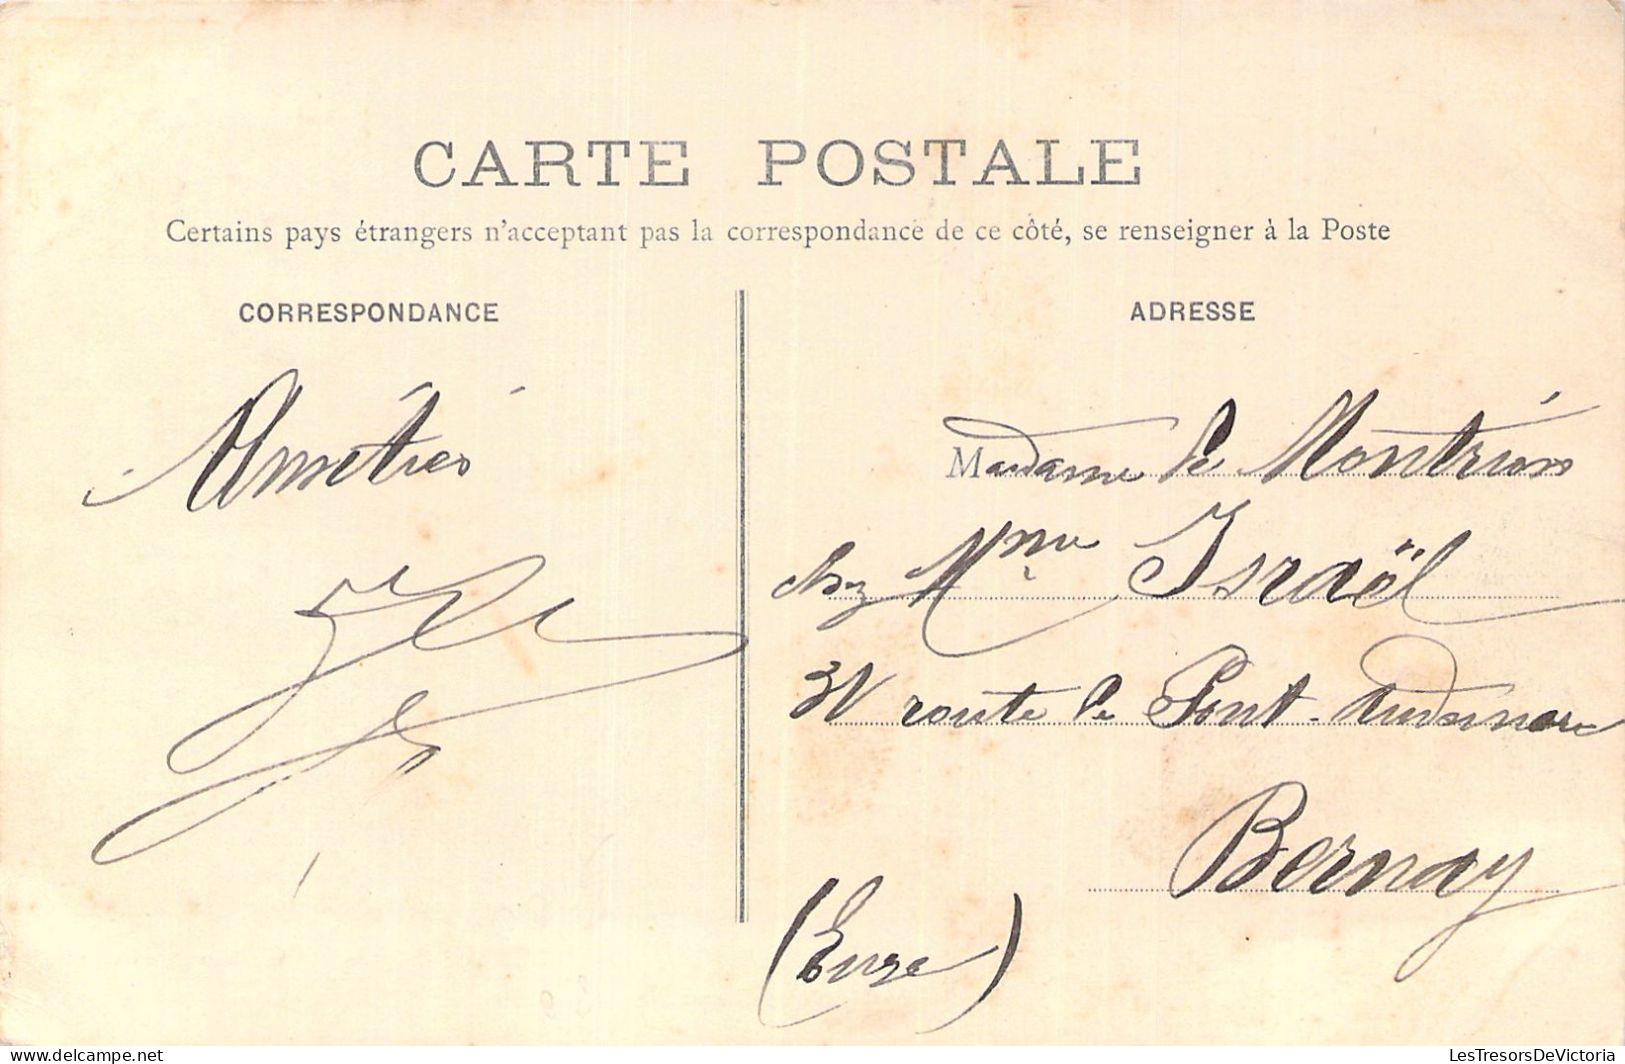 CARTE POSTALE
Certains pays étrangers n'acceptant pas la correspondance de ce côté, se renseigner à la Poste
CORRESPONDANCE
Amitiés
ADRESSE
Madame de
chez Mme Israël
31 route de Pont-Audemer
Bernay
(Eure)
LesTresorsDeVictoria